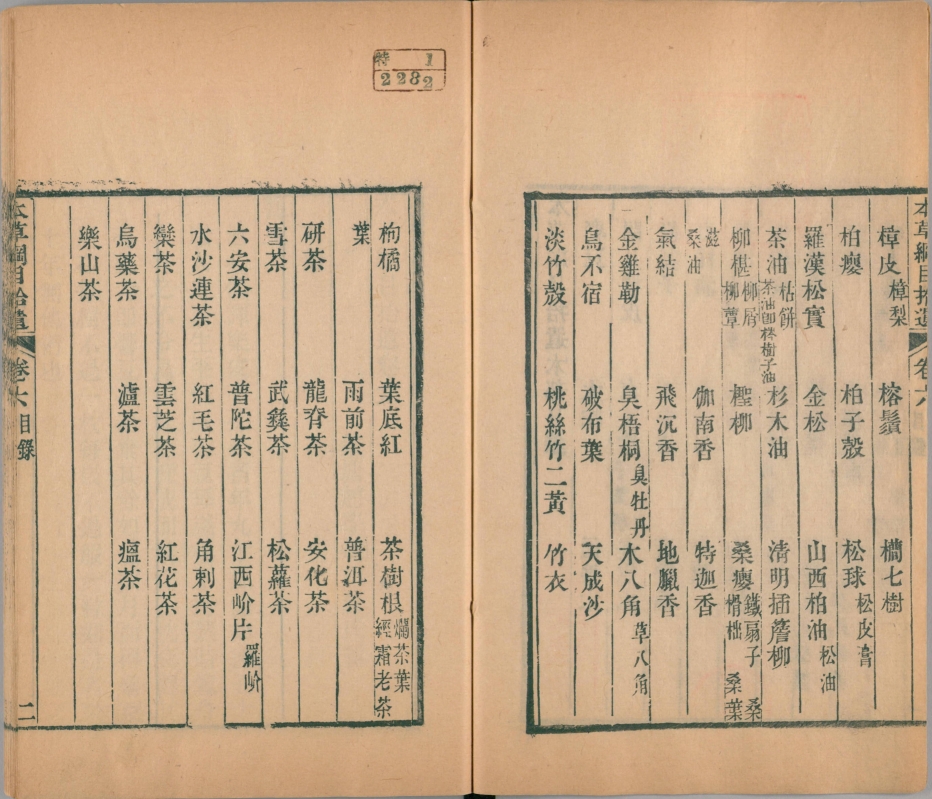 本草綱目拾遺 卷六
樟皮 樟梨 榕鬚 櫹七樹
柏癭 柏子殼 松球 松皮膏
羅漢松實 金松 山西柏油 松油
茶油 枯餅 茶油即梣樹子油 杉木油 清明插簷柳
柳椹 柳屑 柳蕈 檉柳 桑癭 鐵扇子 榾柮 桑葉
滋桑油 伽南香 特迦香
氣結 飛沉香 地臘香
金雞勒 臭梧桐 臭牡丹 木八角 草八角
烏不宿 破布葉 天成沙
淡竹殼 桃絲竹二黃 竹衣
特 1
2282
枸橘 葉底紅 茶樹根 爛茶葉 經霜老茶
葉 雨前茶 普洱茶
研茶 龍脊茶 安化茶
雪茶 武彝茶 松蘿茶
六安茶 普陀茶 江西岕片 羅岕
水沙連茶 紅毛茶 角刺茶
欒茶 雲芝茶 紅花茶
烏藥茶 瀘茶 瘟茶
樂山茶
本草綱目拾遺 卷六 目錄 二